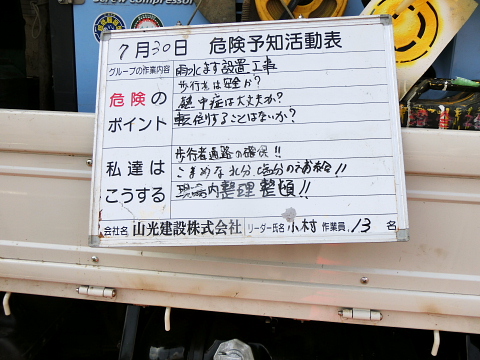 Screw Compressor
7月30日 危険予知活動表
グループの作業内容 雨水ます設置工事
危険のポイント
歩行者は安全か?
熱中症は大丈夫か?
転倒することはないか?
私達はこうする
歩行者通路の確保!!
こまめな水分、塩分の補給!!
現場内整理整頓!!
会社名 山光建設株式会社 リーダー氏名 小村 作業員 13名